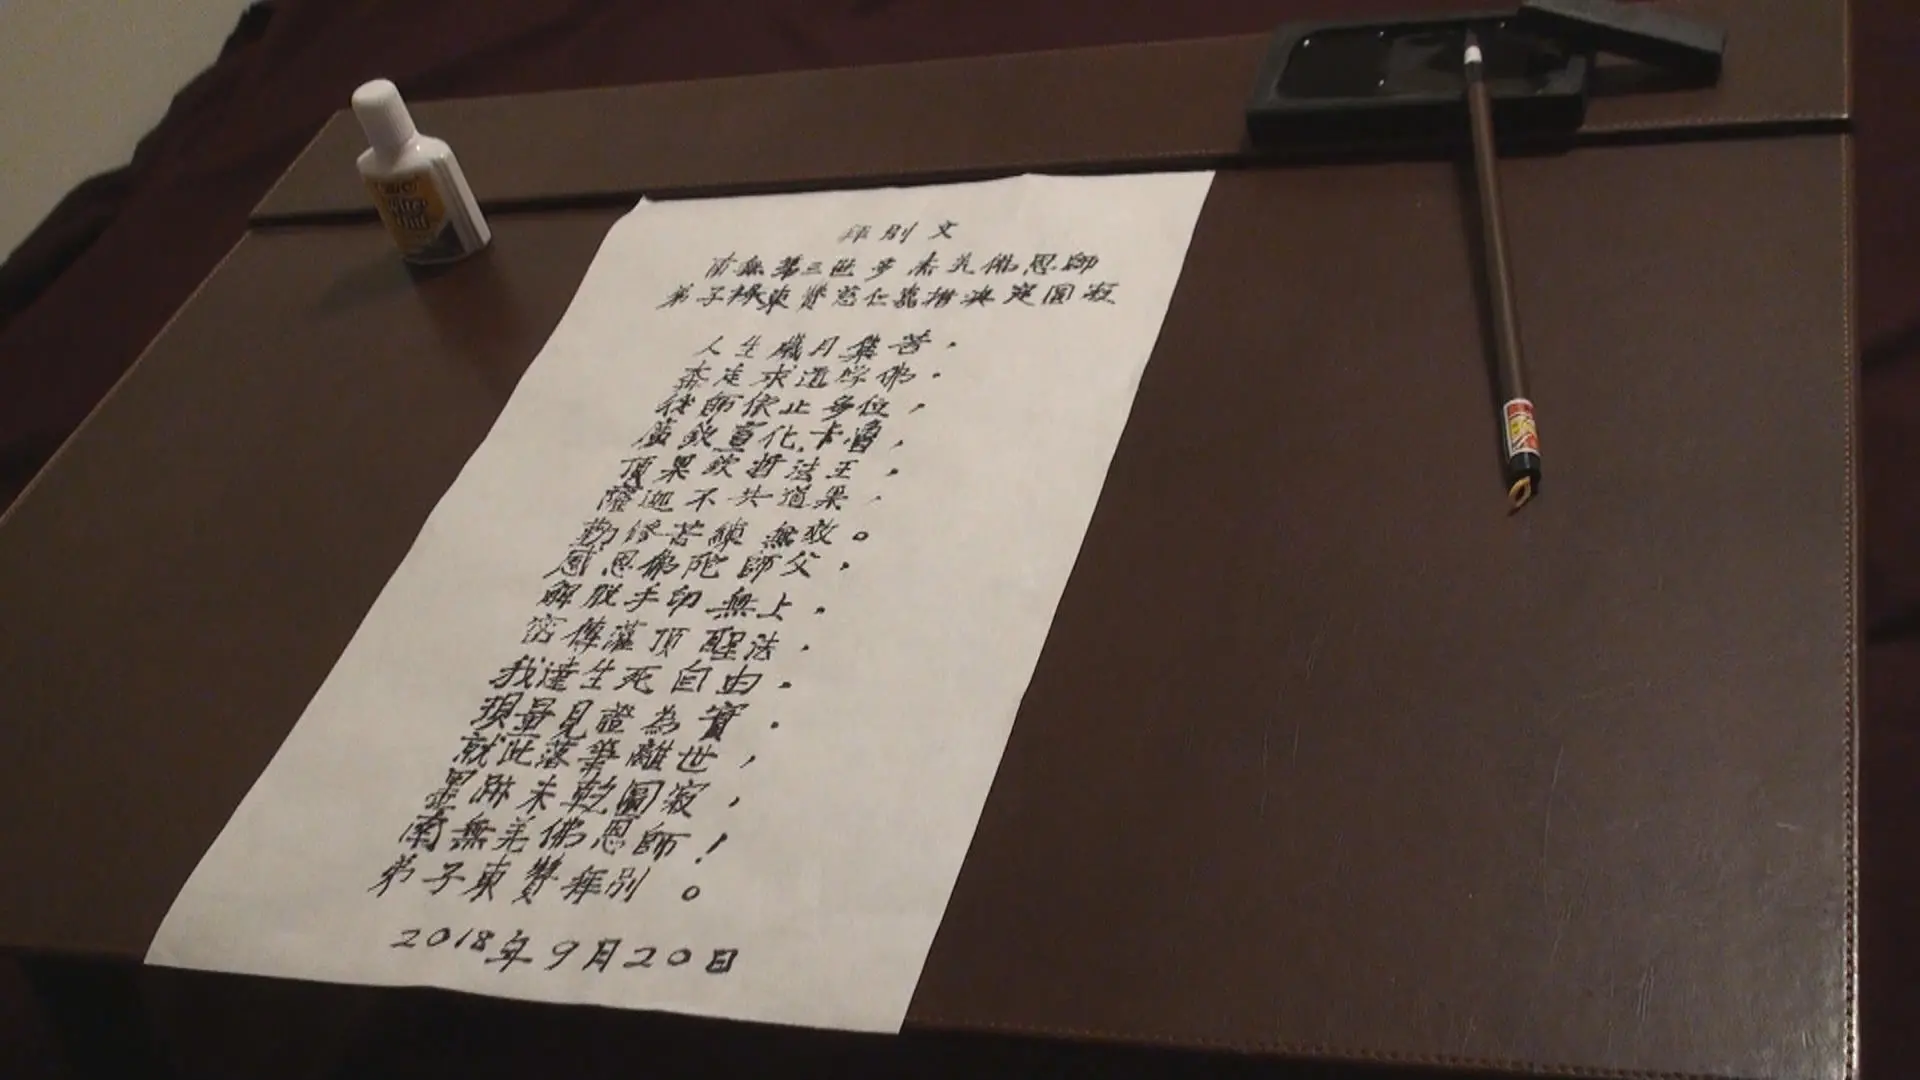 拜別文
南無第三世多杰羌佛恩師
弟子 東贊慈仁嘉措 定圓寂
人生歲月集苦，
奔走求道學佛。
從師依止多位，
廣欽宣化卡魯，
頂果欽哲法王，
薩迦不共道果，
勤修苦練無效。
感恩佛陀師父，
解脫手印無上。
密傳灌頂聖法，
我達生死自由。
現量見證為實。
就此落筆離世，
墨跡未乾圓寂，
南無羌佛恩師！
弟子東贊拜別。
2018年9月20日